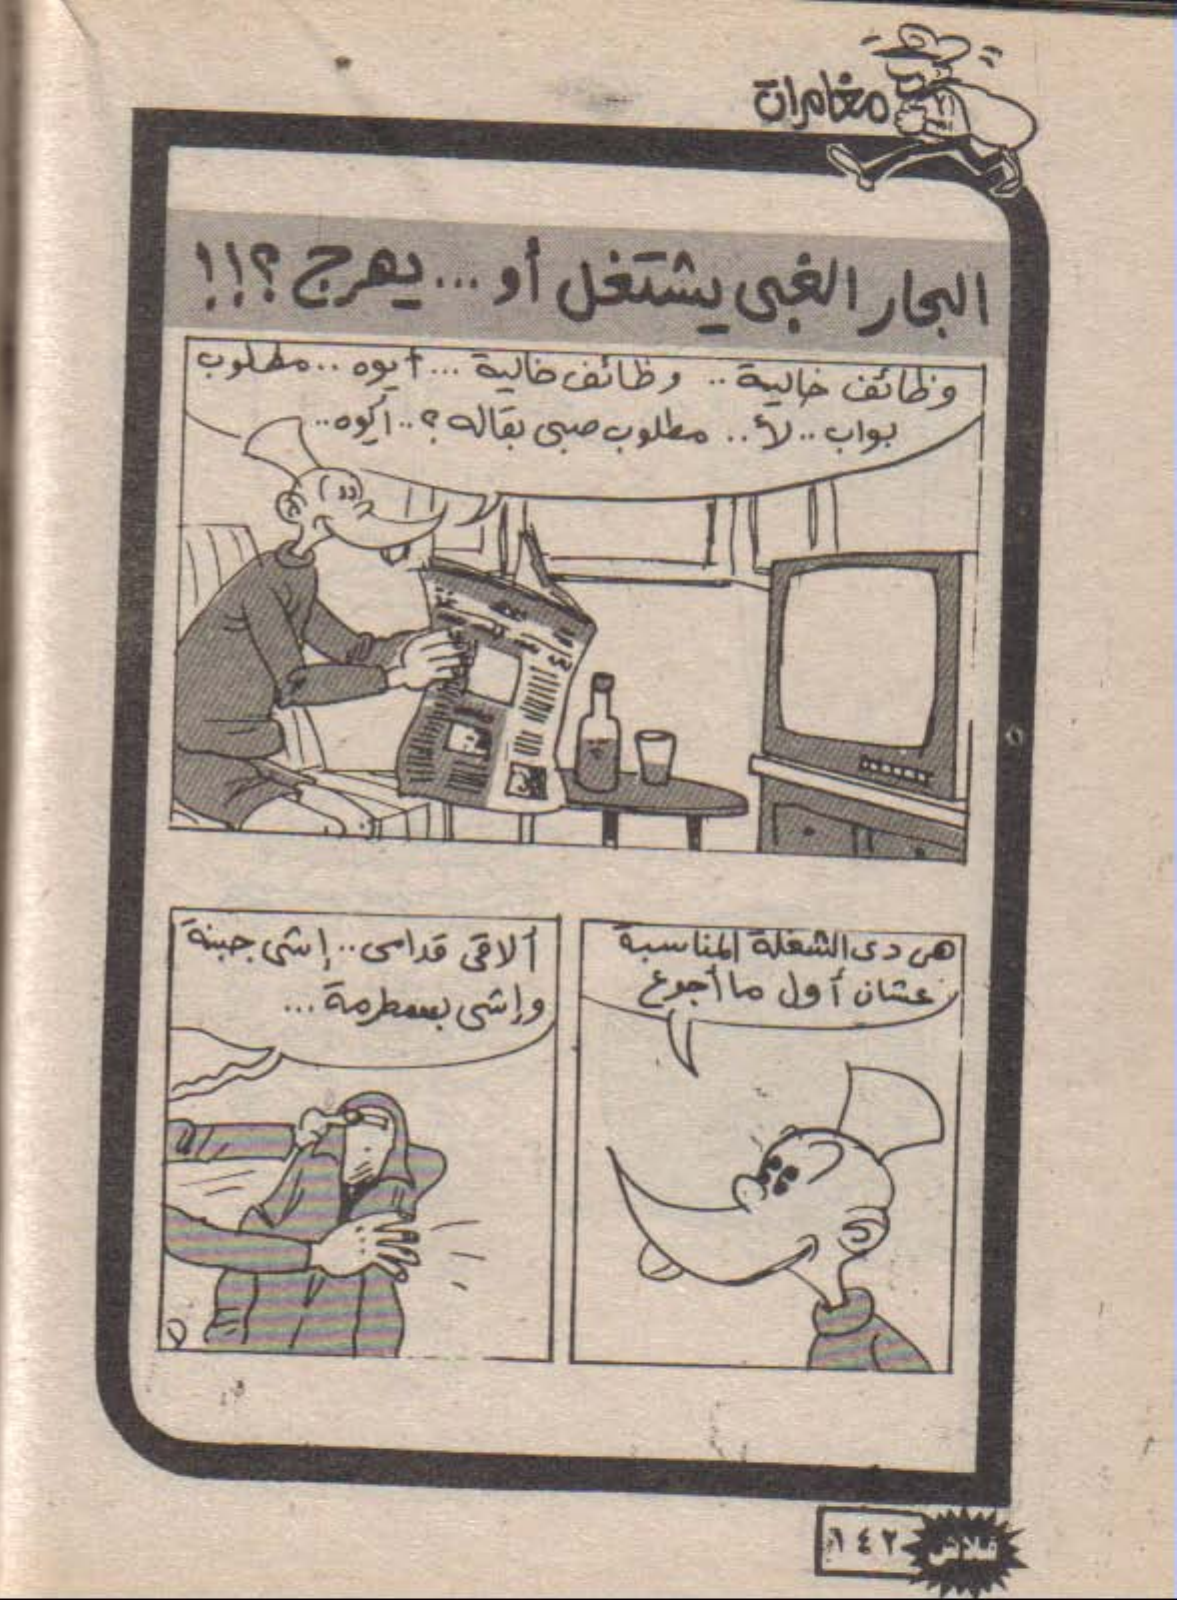 مغامرات
البجار الغبى يشتغل أو... يهرج ؟!!
وظائف خالية .. وظائف خالية ... أيوه .. مطلوب
بواب .. لأ .. مطلوب صبى بقاله ؟ .. أيوه ..
هى دى الشغلة المناسبة
عشان أول ما أجوع
ألاقى قدامى .. إشى جبنة
وإشى بسطرمة ...
فلاش ١٤٢